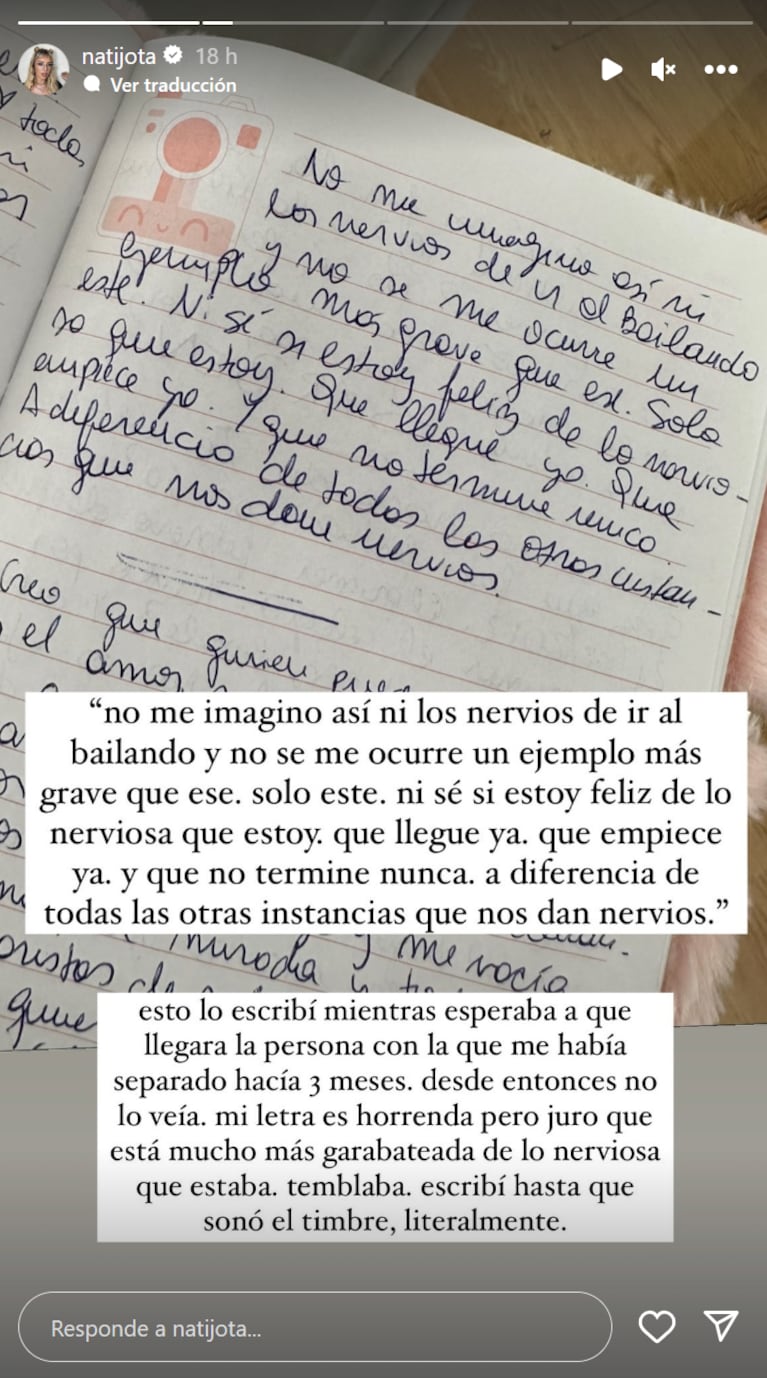 natijota 18 h
Ver traducción
toda,
No me imagino así ni
los nervios de ir al Bailando
y no se me ocurre un
ejemplo más grave que ese. Solo
este. Ni sé si estoy feliz de lo nervio-
sa que estoy. Que llegue ya. Que
empiece ya. Y que no termine nunca.
A diferencia de todas las otras instan-
cias que nos dan nervios.
Creo que quien
el amor
“no me imagino así ni los nervios de ir al
bailando y no se me ocurre un ejemplo más
grave que ese. solo este. ni sé si estoy feliz de lo
nerviosa que estoy. que llegue ya. que empiece
ya. y que no termine nunca. a diferencia de
todas las otras instancias que nos dan nervios.”
y me vacía
que
esto lo escribí mientras esperaba a que
llegara la persona con la que me había
separado hacía 3 meses. desde entonces no
lo veía. mi letra es horrenda pero juro que
está mucho más garabateada de lo nerviosa
que estaba. temblaba. escribí hasta que
sonó el timbre, literalmente.
Responde a natijota...